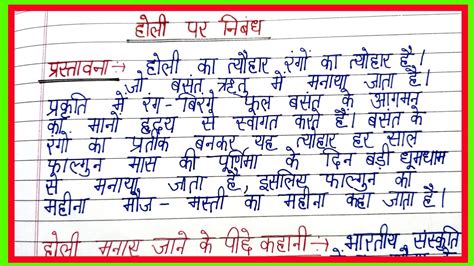 होली पर निबंध
प्रस्तावना :→ होली का त्यौहार रंगों का त्योहार है।
जो बसंत ऋतु में मनाया जाता है।
प्रकृति में रंग-बिरंगे फूल बसंत के आगमन
का मानों हृदय से स्वागत करते हैं। बसंत के
रंगों का प्रतीक बनकर यह त्याहार हर साल
फाल्गुन मास की पूर्णिमा के दिन बड़ी धूमधाम
से मनाया जाता है, इसलिए फाल्गुन को
महीना मौज-मस्ती का महीना कहा जाता है।
होली मनाय जाने के पीछे कहानी :→ भारतीय संस्कृति